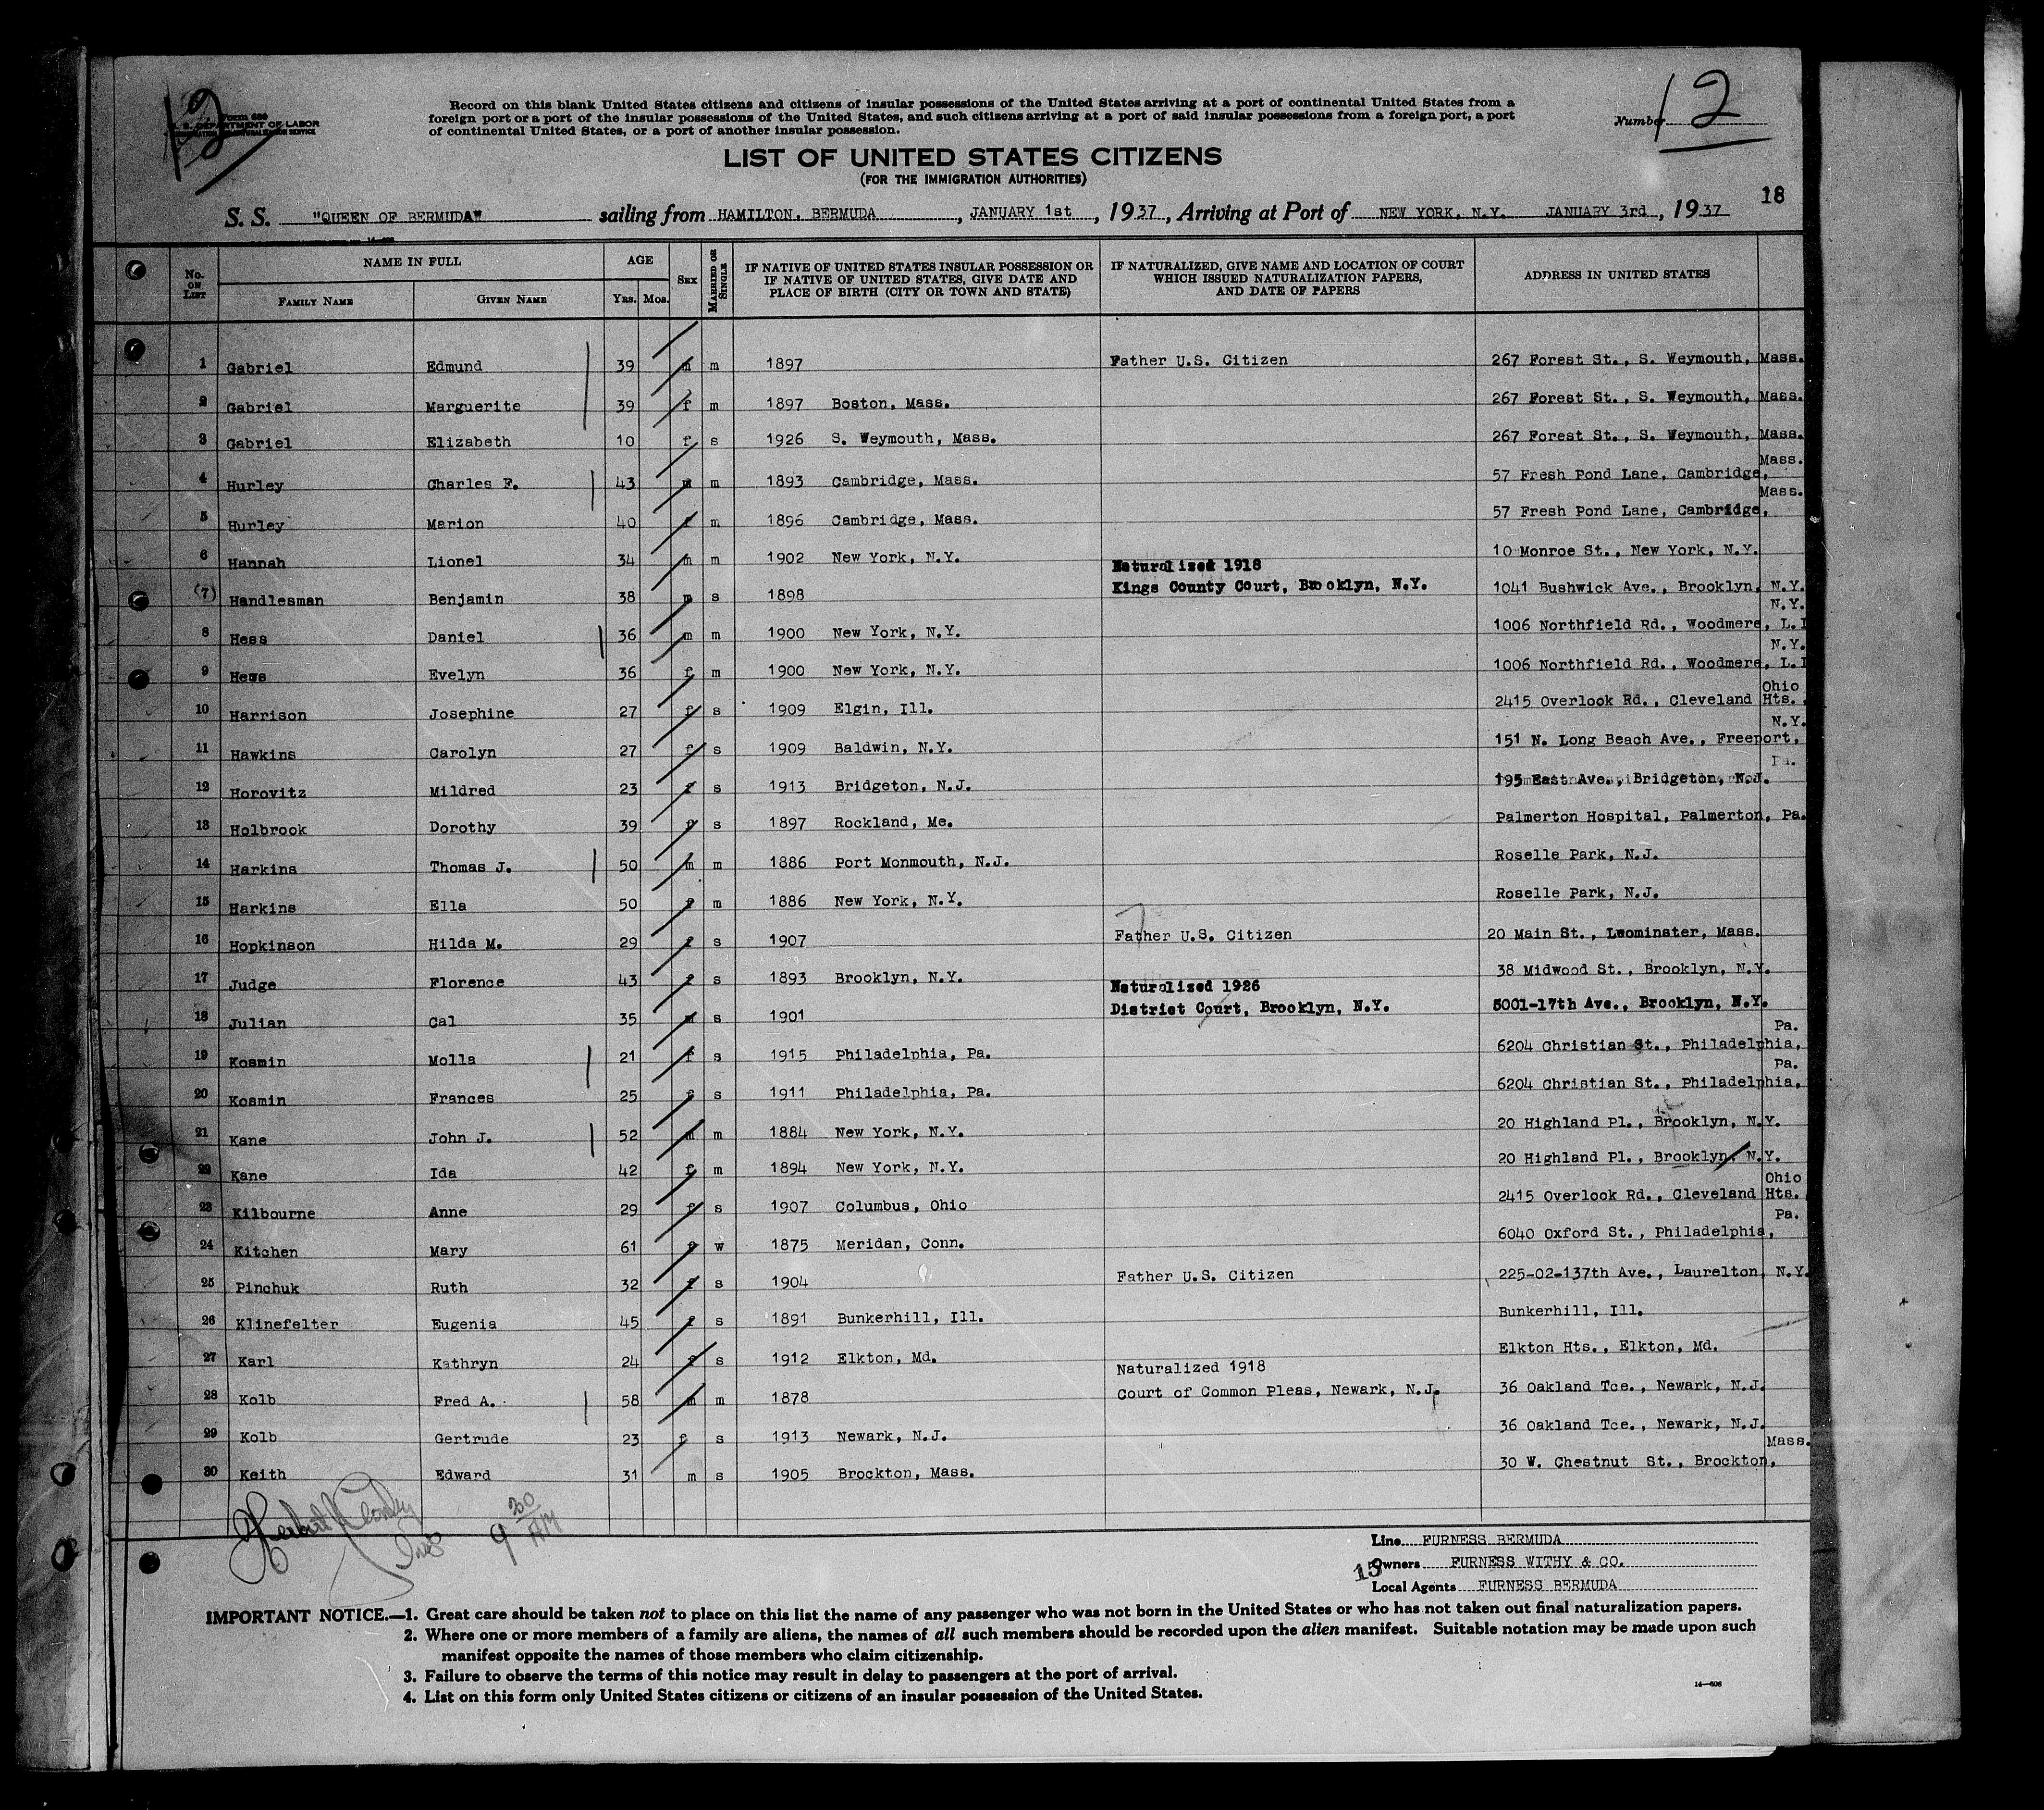 12
Form 686
U. S. DEPARTMENT OF LABOR
IMMIGRATION AND NATURALIZATION SERVICE
Record on this blank United States citizens and citizens of insular possessions of the United States arriving at a port of continental United States from a
foreign port or a port of the insular possessions of the United States, and such citizens arriving at a port of said insular possessions from a foreign port, a port
of continental United States, or a port of another insular possession.
Number 12
LIST OF UNITED STATES CITIZENS
(FOR THE IMMIGRATION AUTHORITIES)
18
S. S. "QUEEN OF BERMUDA" sailing from HAMILTON. BERMUDA, JANUARY 1st, 1937, Arriving at Port of NEW YORK, N.Y. JANUARY 3rd, 1937
No. ON LIST NAME IN FULL FAMILY NAME GIVEN NAME AGE YRS. MOS. SEX MARRIED OR SINGLE IF NATIVE OF UNITED STATES INSULAR POSSESSION OR IF NATIVE OF UNITED STATES, GIVE DATE AND PLACE OF BIRTH (CITY OR TOWN AND STATE) IF NATURALIZED, GIVE NAME AND LOCATION OF COURT WHICH ISSUED NATURALIZATION PAPERS, AND DATE OF PAPERS ADDRESS IN UNITED STATES
1 Gabriel Edmund 39 m m 1897 Father U.S. Citizen 267 Forest St., S. Weymouth, Mass.
2 Gabriel Marguerite 39 f m 1897 Boston, Mass. 267 Forest St., S. Weymouth, Mass.
3 Gabriel Elizabeth 10 f s 1926 S. Weymouth, Mass. 267 Forest St., S. Weymouth, Mass.
4 Hurley Charles F. 43 m m 1893 Cambridge, Mass. 57 Fresh Pond Lane, Cambridge, Mass.
5 Hurley Marion 40 f m 1896 Cambridge, Mass. 57 Fresh Pond Lane, Cambridge, Mass.
6 Hannah Lionel 34 m m 1902 New York, N.Y. 10 Monroe St., New York, N.Y.
(7) Handlesman Benjamin 38 m s 1898 Naturalized 1918 Kings County Court, Brooklyn, N.Y. 1041 Bushwick Ave., Brooklyn, N.Y.
8 Hess Daniel 36 m m 1900 New York, N.Y. 1006 Northfield Rd., Woodmere, L.I N.Y.
9 Hess Evelyn 36 f m 1900 New York, N.Y. 1006 Northfield Rd., Woodmere, L.I N.Y.
10 Harrison Josephine 27 f s 1909 Elgin, Ill. 2415 Overlook Rd., Cleveland Hts., Ohio
11 Hawkins Carolyn 27 f s 1909 Baldwin, N.Y. 151 N. Long Beach Ave., Freeport, N.Y.
12 Horovitz Mildred 23 f s 1913 Bridgeton, N.J. 195 East Ave., Bridgeton, N.J.
13 Holbrook Dorothy 39 f s 1897 Rockland, Me. Palmerton Hospital, Palmerton, Pa.
14 Harkins Thomas J. 50 m m 1886 Port Monmouth, N.J. Roselle Park, N.J.
15 Harkins Ella 50 f m 1886 New York, N.Y. Roselle Park, N.J.
16 Hopkinson Hilda M. 29 f s 1907 Father U.S. Citizen 20 Main St., Leominster, Mass.
17 Judge Florence 43 f s 1893 Brooklyn, N.Y. 38 Midwood St., Brooklyn, N.Y.
18 Julian Cal 35 m s 1901 Naturalized 1926 District Court, Brooklyn, N.Y. 5001-17th Ave., Brooklyn, N.Y.
19 Kosmin Molla 21 f s 1915 Philadelphia, Pa. 6204 Christian St., Philadelphia, Pa.
20 Kosmin Frances 25 f s 1911 Philadelphia, Pa. 6204 Christian St., Philadelphia, Pa.
21 Kane John J. 52 m m 1884 New York, N.Y. 20 Highland Pl., Brooklyn, N.Y.
22 Kane Ida 42 f m 1894 New York, N.Y. 20 Highland Pl., Brooklyn, N.Y.
23 Kilbourne Anne 29 f s 1907 Columbus, Ohio 2415 Overlook Rd., Cleveland Hts. Ohio
24 Kitchen Mary 61 f w 1875 Meridan, Conn. 6040 Oxford St., Philadelphia, Pa.
25 Pinchuk Ruth 32 f s 1904 Father U.S. Citizen 225-02-137th Ave., Laurelton, N.Y.
26 Klinefelter Eugenia 45 f s 1891 Bunkerhill, Ill. Bunkerhill, Ill.
27 Karl Kathryn 24 f s 1912 Elkton, Md. Elkton Hts., Elkton, Md.
28 Kolb Fred A. 58 m m 1878 Naturalized 1918 Court of Common Pleas, Newark, N.J. 36 Oakland Tce., Newark, N.J.
29 Kolb Gertrude 23 f s 1913 Newark, N.J. 36 Oakland Tce., Newark, N.J.
30 Keith Edward 31 m s 1905 Brockton, Mass. 30 W. Chestnut St., Brockton, Mass.
9 30 AM
Line FURNESS BERMUDA
15
Owners FURNESS WITHY & CO.
Local Agents FURNESS BERMUDA
IMPORTANT NOTICE.—1. Great care should be taken not to place on this list the name of any passenger who was not born in the United States or who has not taken out final naturalization papers.
2. Where one or more members of a family are aliens, the names of all such members should be recorded upon the alien manifest. Suitable notation may be made upon such
manifest opposite the names of those members who claim citizenship.
3. Failure to observe the terms of this notice may result in delay to passengers at the port of arrival.
4. List on this form only United States citizens or citizens of an insular possession of the United States.
14—606